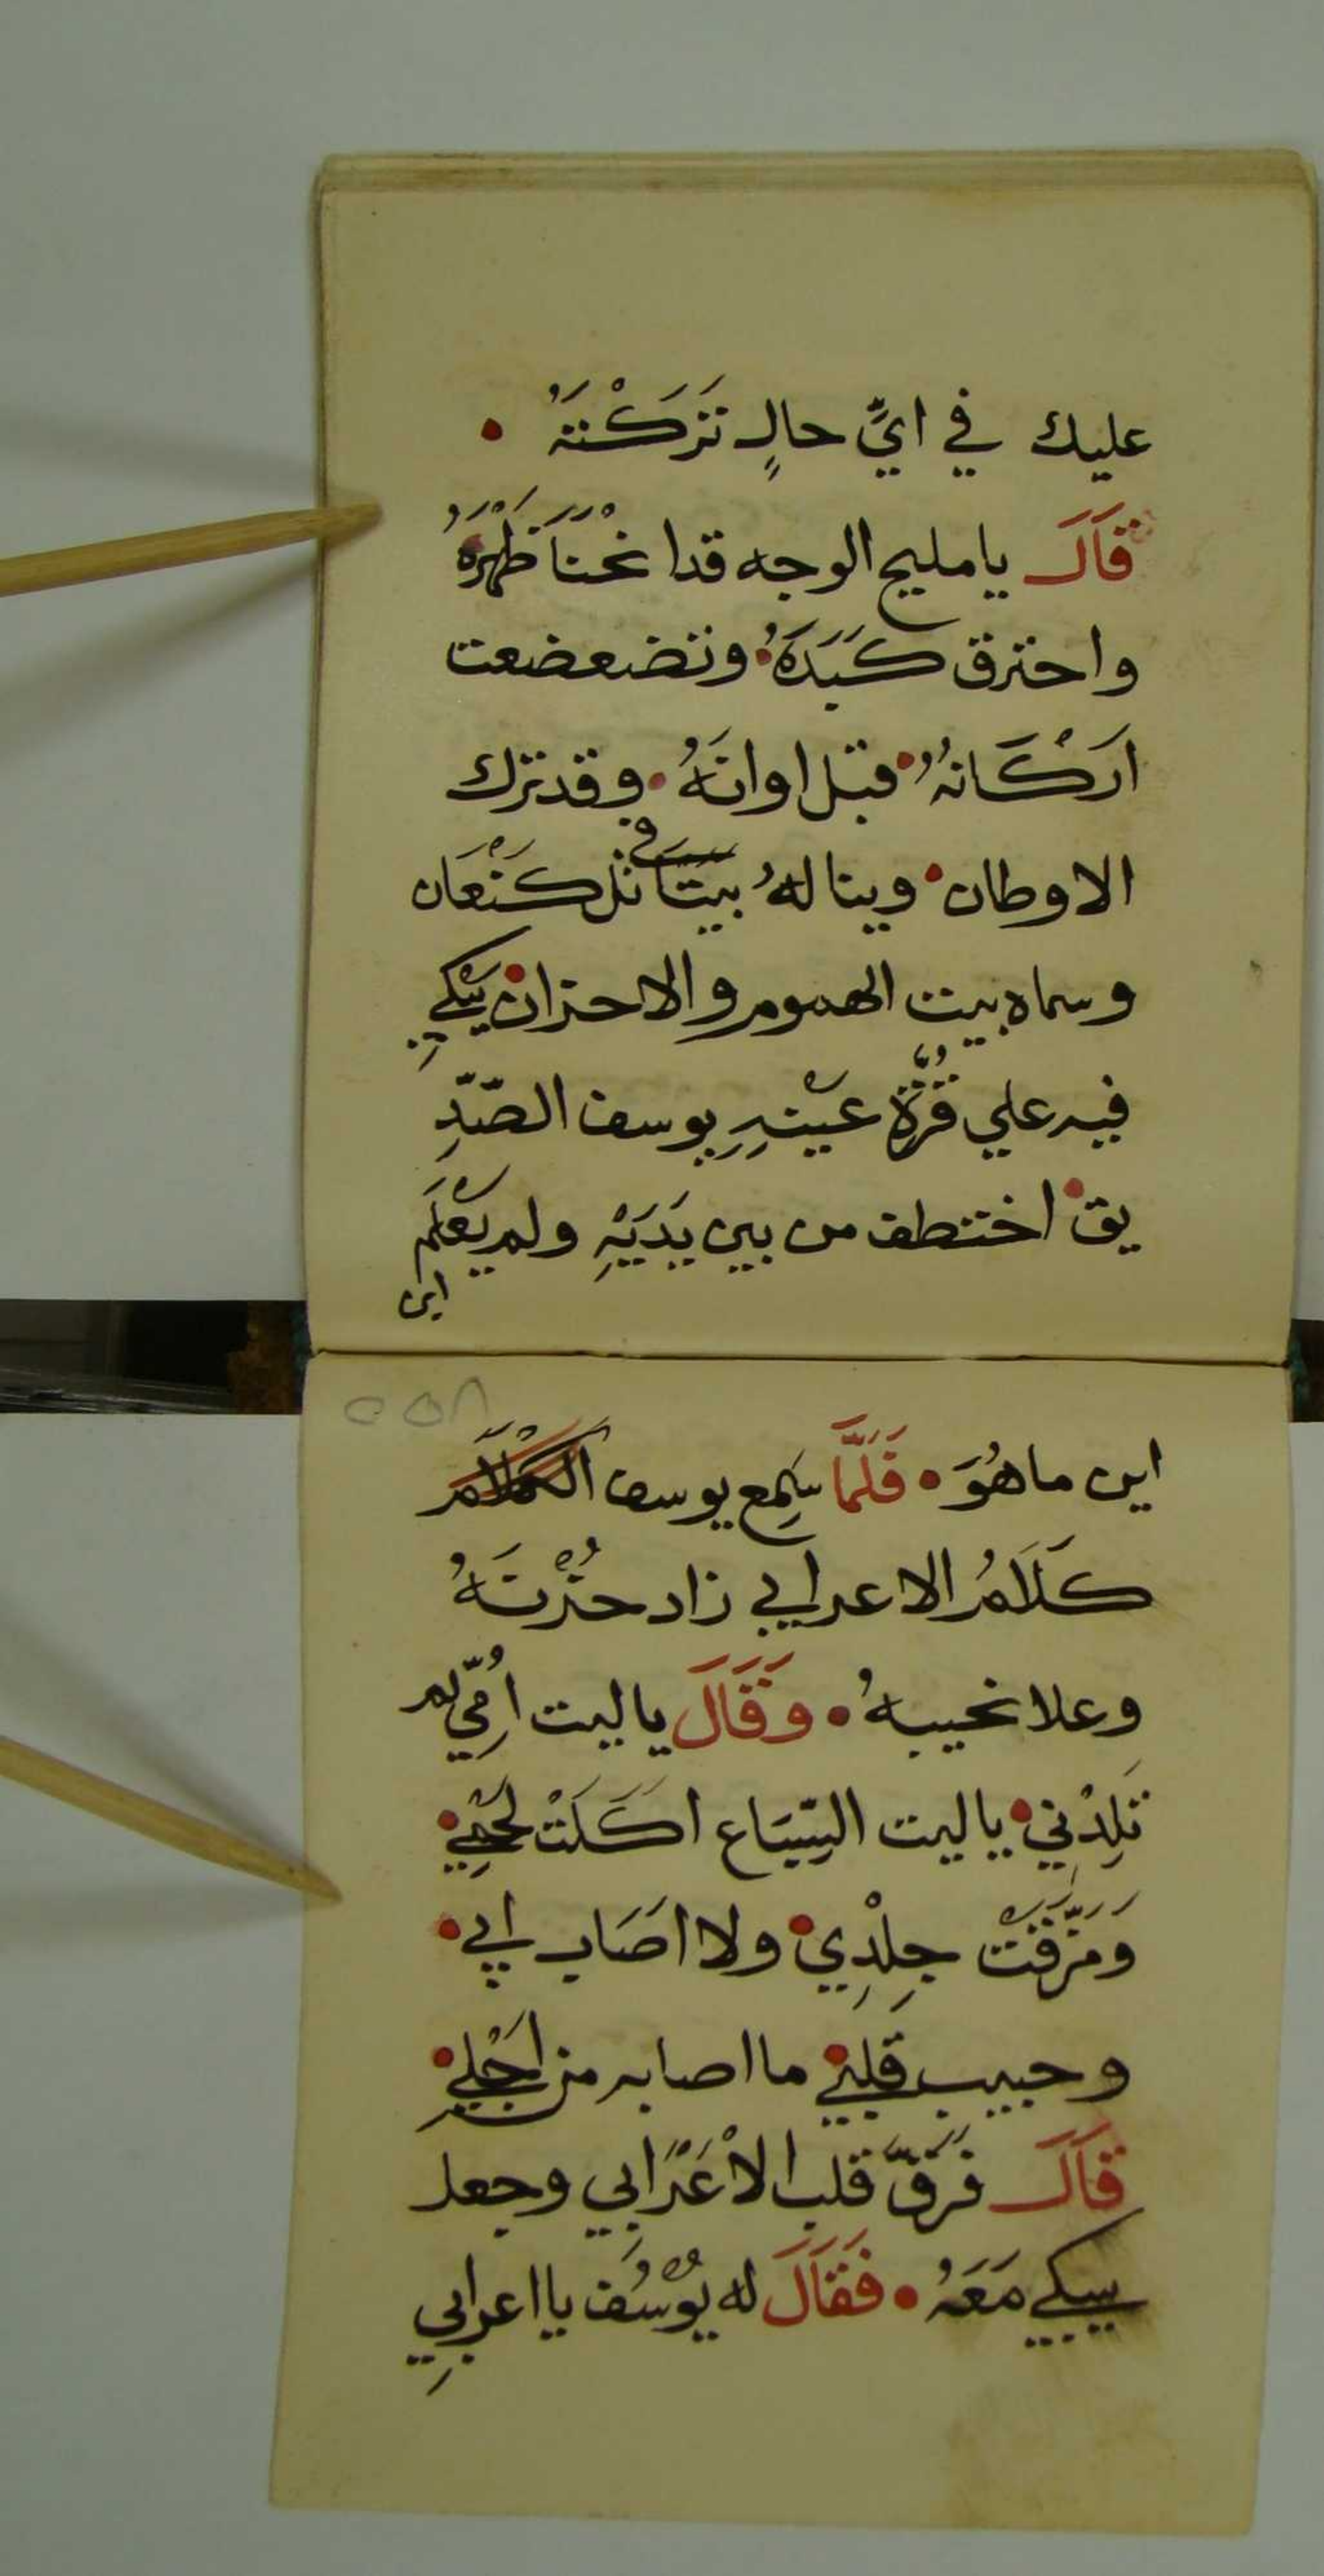 عليك في ايِّ حالٍ تَرَكْتَهُ •
قَالَ يا مليح الوجه قدا نحْنَا ظَهْرَهُ
واحترق كَبَدَهُ • وتضعضعت
اَركَانهُ • قبل اوانَهُ • وقد ترك
الاوطان • وبنا لهُ بيتَا في تل كَنْعَان
وسماه بيت الهموم والاحزان • يَبْكي
فيه علي قُرَّة عَيْنِهِ يوسف الصّدِّ
يق • اختطف من بين يَدَيْهِ ولم يَعْلَم
اين
٥٥٨
اين ما هُوَ • فَلَمَّا سَمِع يوسف الكلام
كَلَامُ الاعرابي زاد حُزْنَهُ
وعلا نحيبهُ • وَقَالَ يا ليت اُمّي لم
تَلِدْني • يا ليت السِّبَاع اَكَلَتْ لحْمِي •
وَمَزَّقَتْ جِلْدِي • ولا اَصَاب ابي •
وحبيب قلبي • ما اصابه من اَجْلي •
قَالَ فَرَقَّ قلب الاْعْرَابي وجعل
يبكي مَعَهُ • فَقَالَ له يُوْسُف يا اعرابي